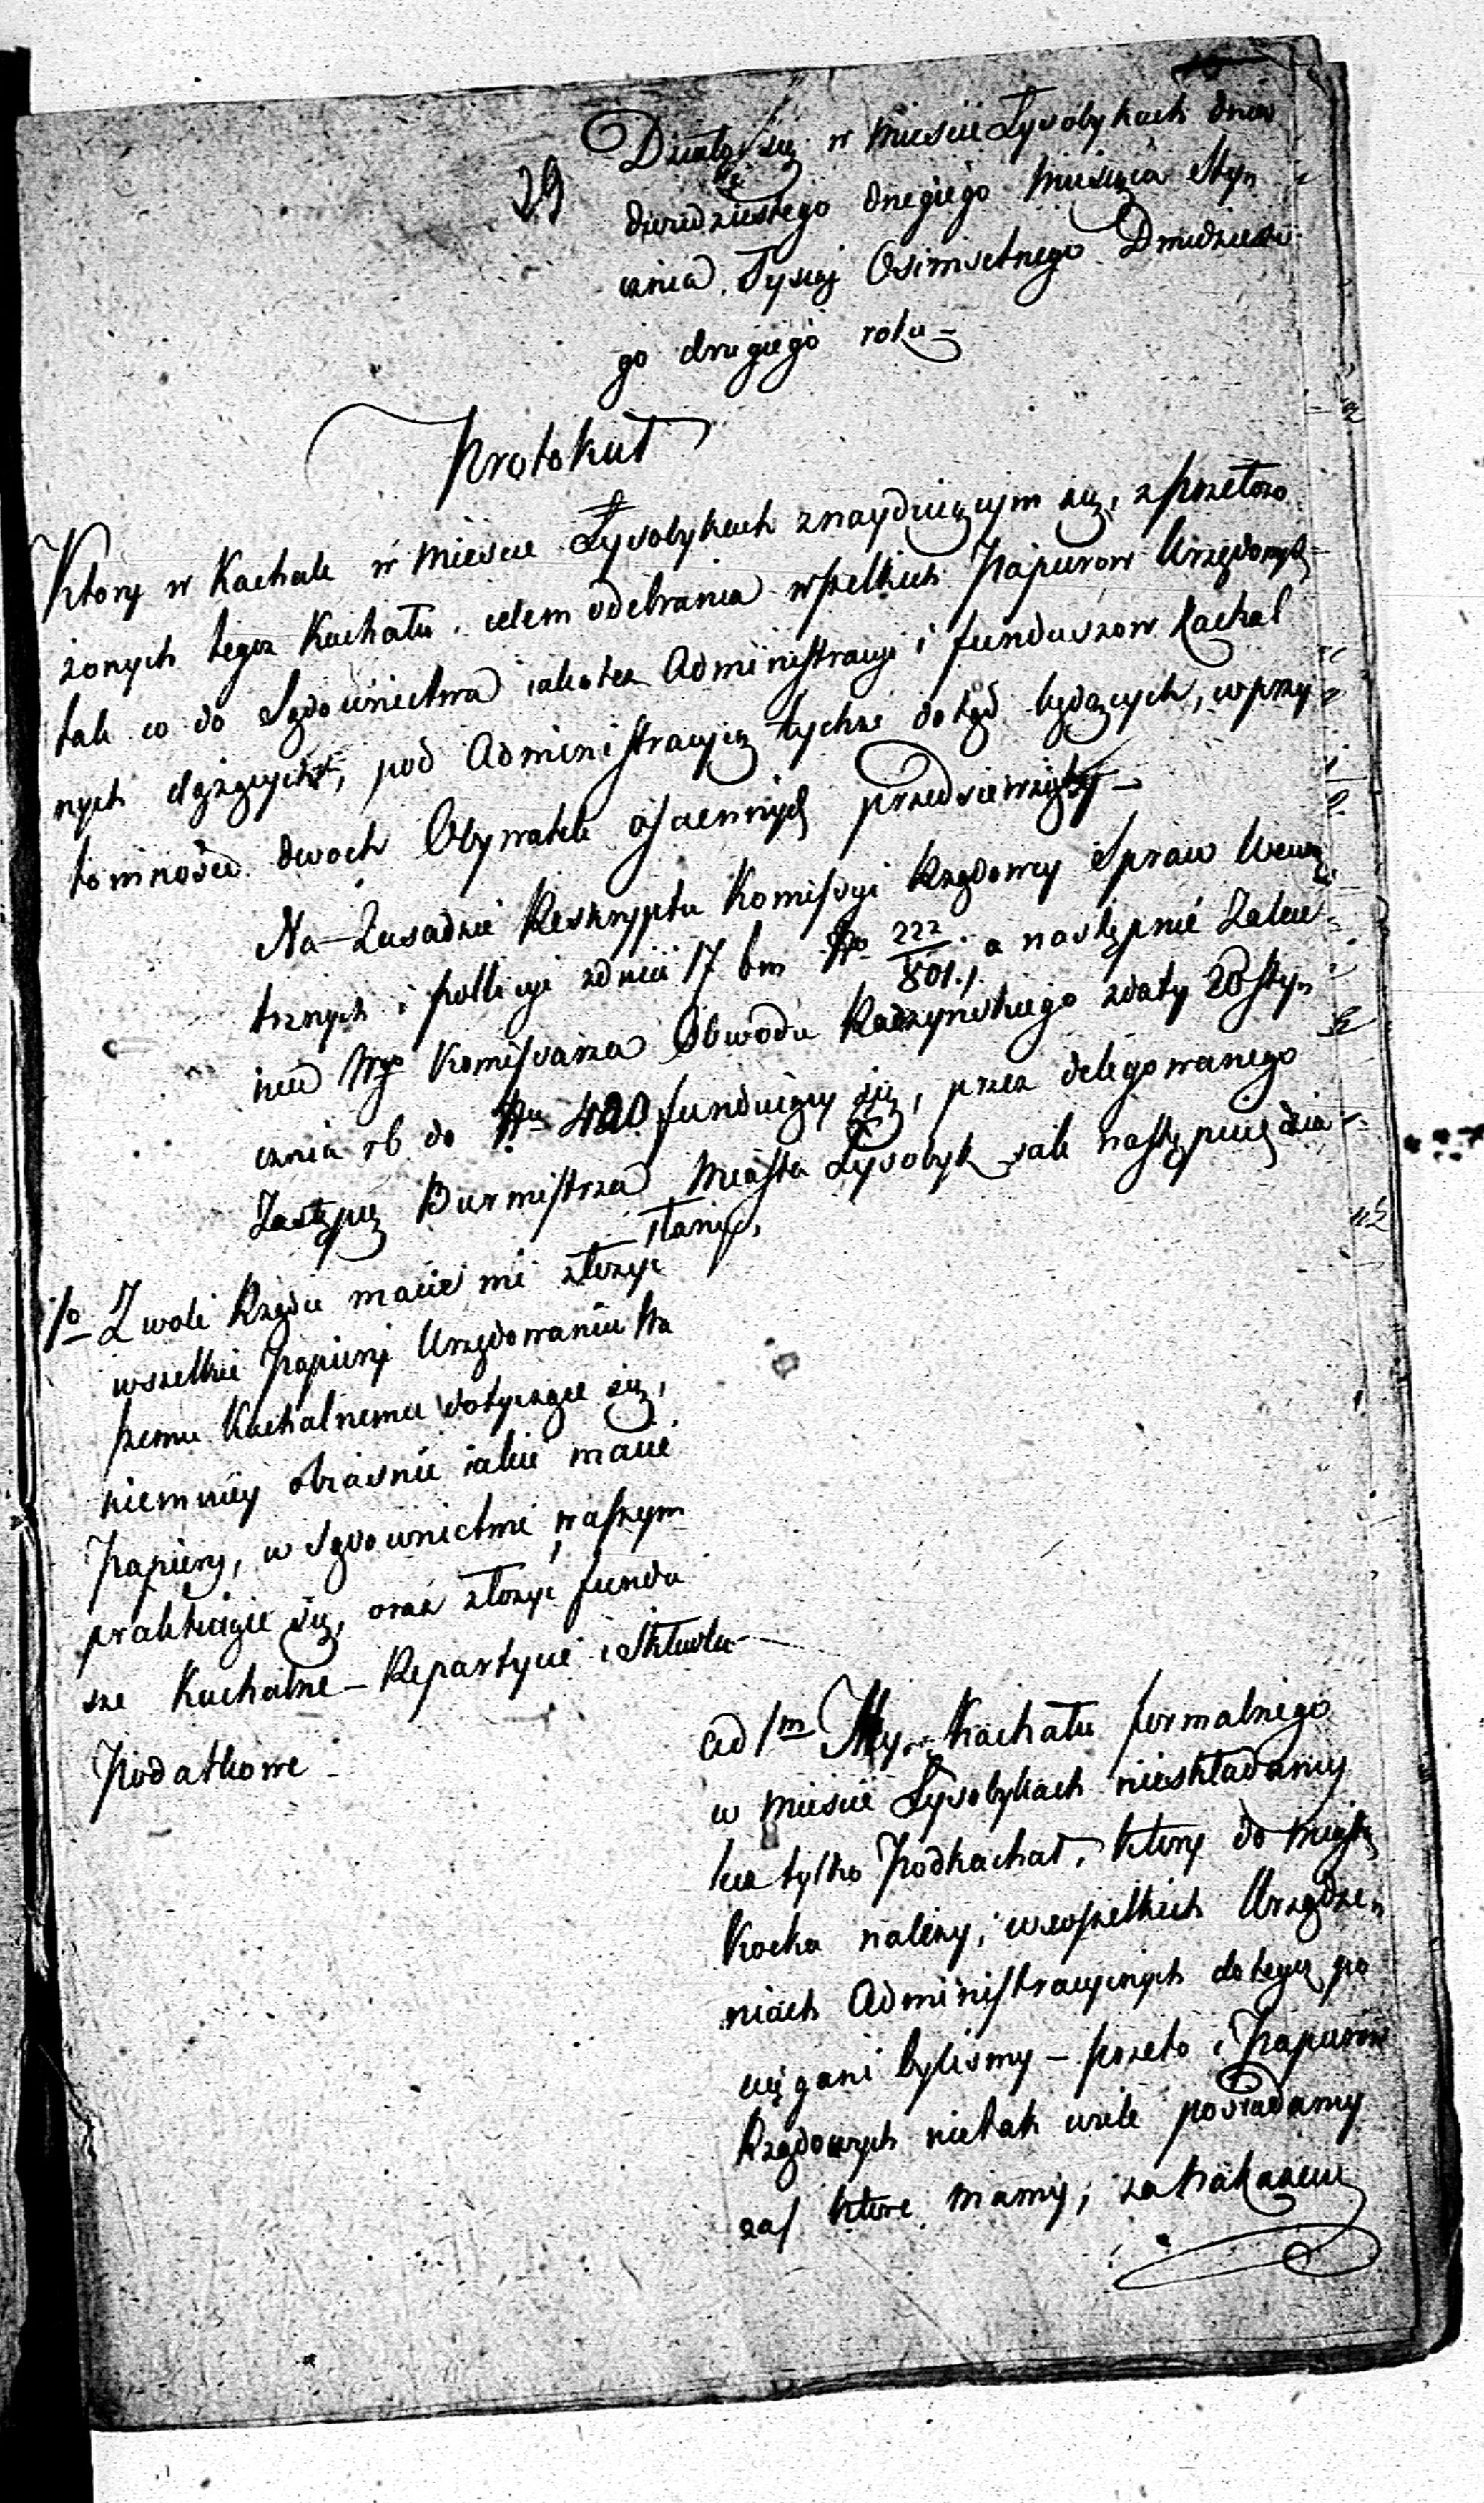 29
Działo się w Mieście Łysobykach dnia
dwudziestego drugiego Miesiąca Sty„
cznia. Tysiąc Osimsetnego Dwudzieste
go drugiego roku –
Protokuł
Ktory w Kachale w Mieście Łysobykach znayduiącym się, z przeło
żonych tegoż Kachału. celem odebrania wszelkich Papierow Urzędowych
tak co do Sądownictwa iakotez Administracyi i funduszow Kachal
nych dążących, pod Administracyią tychże dotąd będących, w przy
tomności dwoch Obywateli osiadłych przedsiewzięty –
Na Zasadzie Reskryptu Komissyi Rządowey Spraw Wewnę
trznych i Pollicyi z dnia 17 bm No 222/801. a następnie Zalece
nia Wgo Komissarza Obwodu Radzyńskiego z daty 20 Sty„
cznia rb do Nru 420 funduiący się, przez delegowanego
Zastępcę Burmistrza Miasta Łysobyk sale następuię dzia
łanie,
1o Z woli Rządu macie mi złożyć
wszelkie Papiery Urzędowaniu Wa
szemu Kachalnemu dotyczące się,
niemniey obiaśnić iakie macie
Papiery, w Sądownictwie waszym
praktuiące się, oraz złożyć fundu
sze Kachalne – Repartycie i Skłutu
Podatkowe –
ad 1m My, Kachału formalnego
w mieście Łysobykach nieskładamy
lecz tylko Podkachał, ktory do Miasta
Kocka należy, we wszelkich Urządze„
niach Administracyinych do tego po
ciągani byliśmy – przeto i Papierow
Rządowych nietak wiele posiadamy
zaś ktore mamy, za Nakazem